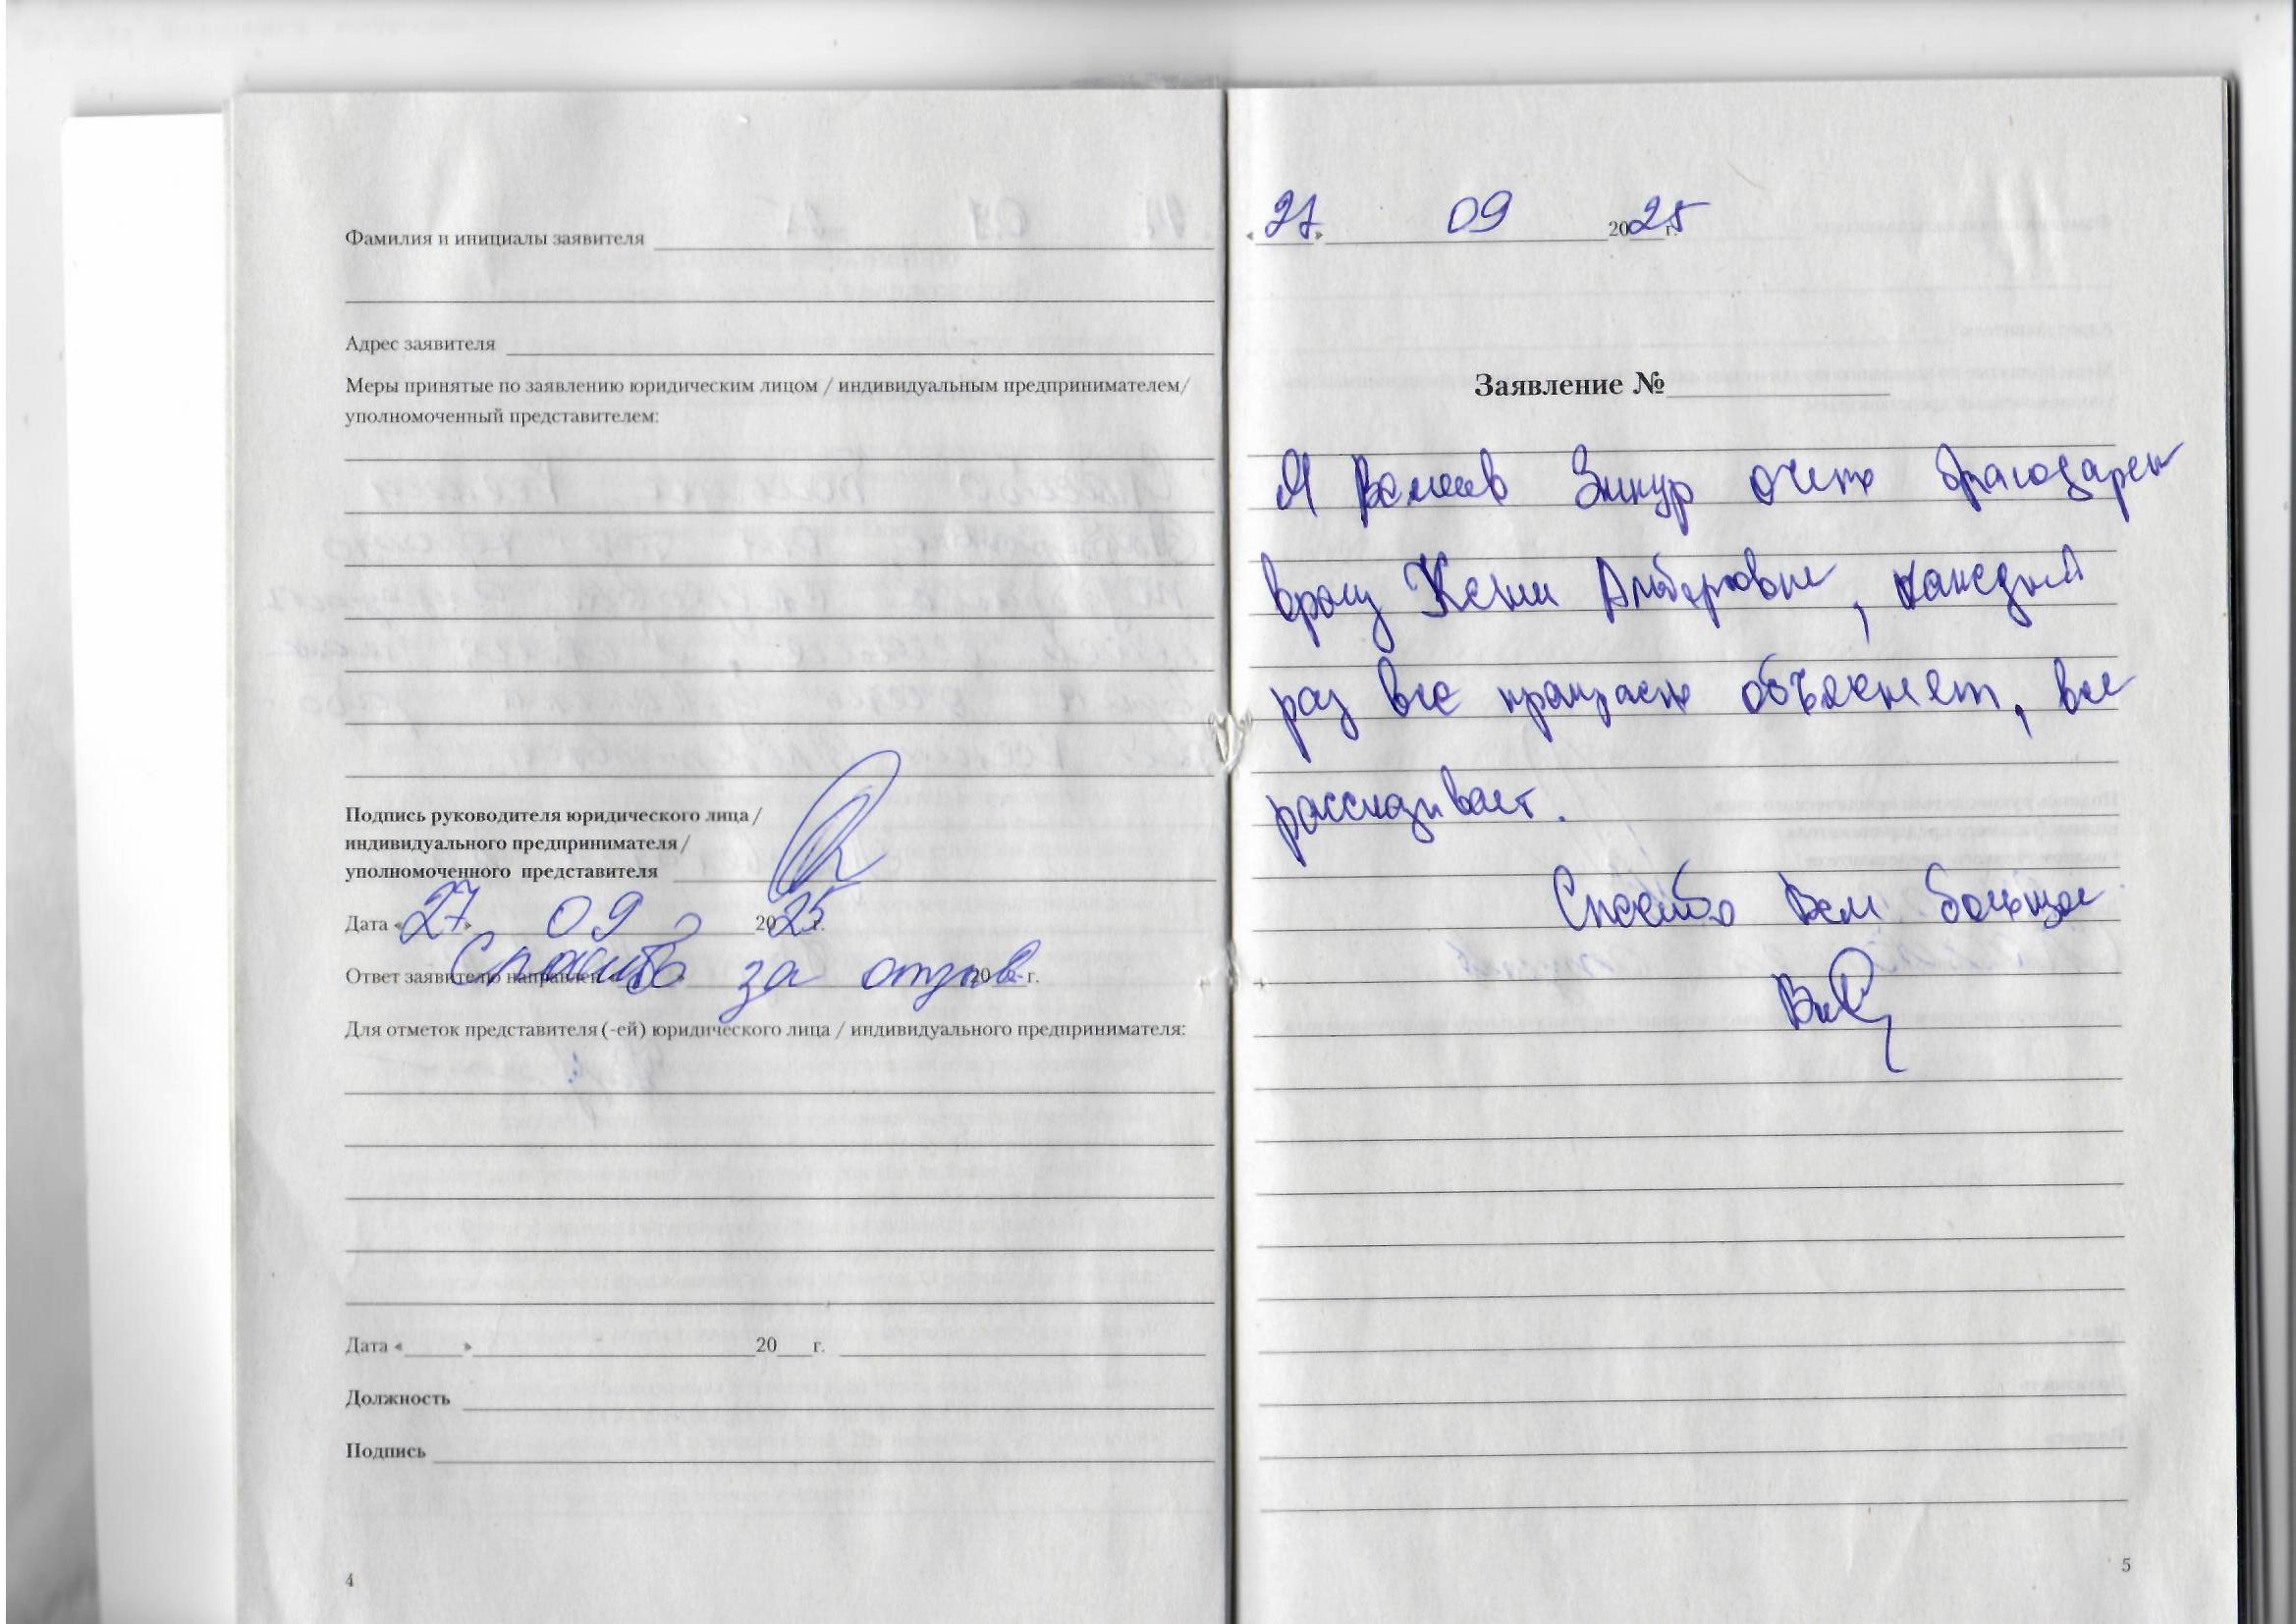 Фамилия и инициалы заявителя
Адрес заявителя
Меры принятые по заявлению юридическим лицом / индивидуальным предпринимателем/
уполномоченный представителем:
Подпись руководителя юридического лица /
индивидуального предпринимателя /
уполномоченного представителя
Дата «27» 09 2025 г.
Ответ заявителю направлен « » 20 г.
Спасибо за отзыв
Для отметок представителя (-ей) юридического лица / индивидуального предпринимателя:
Дата « » 20 г.
Должность
Подпись
4
«27» 09 2025 г.
Заявление №
Я Валеев Зиннур очень благодарен
врачу Ксении Альбертовне, каждый
раз все прекрасно объясняет, все
рассказывает.
Спасибо Вам большое
5